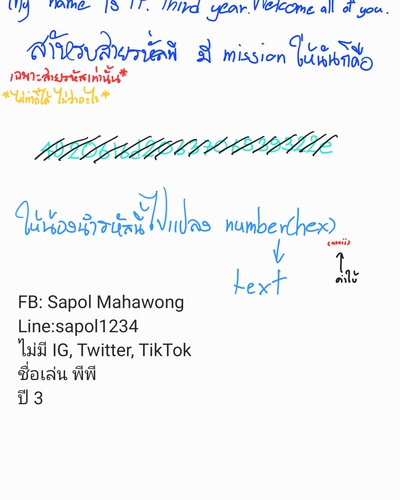 My name is IT. Third year. Welcome all of you.
สำหรับสายรหัสพี่ มี mission ให้นั่นก็คือ
เฉพาะสายรหัสเท่านั้น*
*ไม่ทำก็ได้ ไม่ว่าอะไร*
ให้น้องนำรหัสนี้ไปแปลง number(hex)
(ascii)
text
คำใบ้
FB: Sapol Mahawong
Line:sapol1234
ไม่มี IG, Twitter, TikTok
ชื่อเล่น พีพี
ปี 3